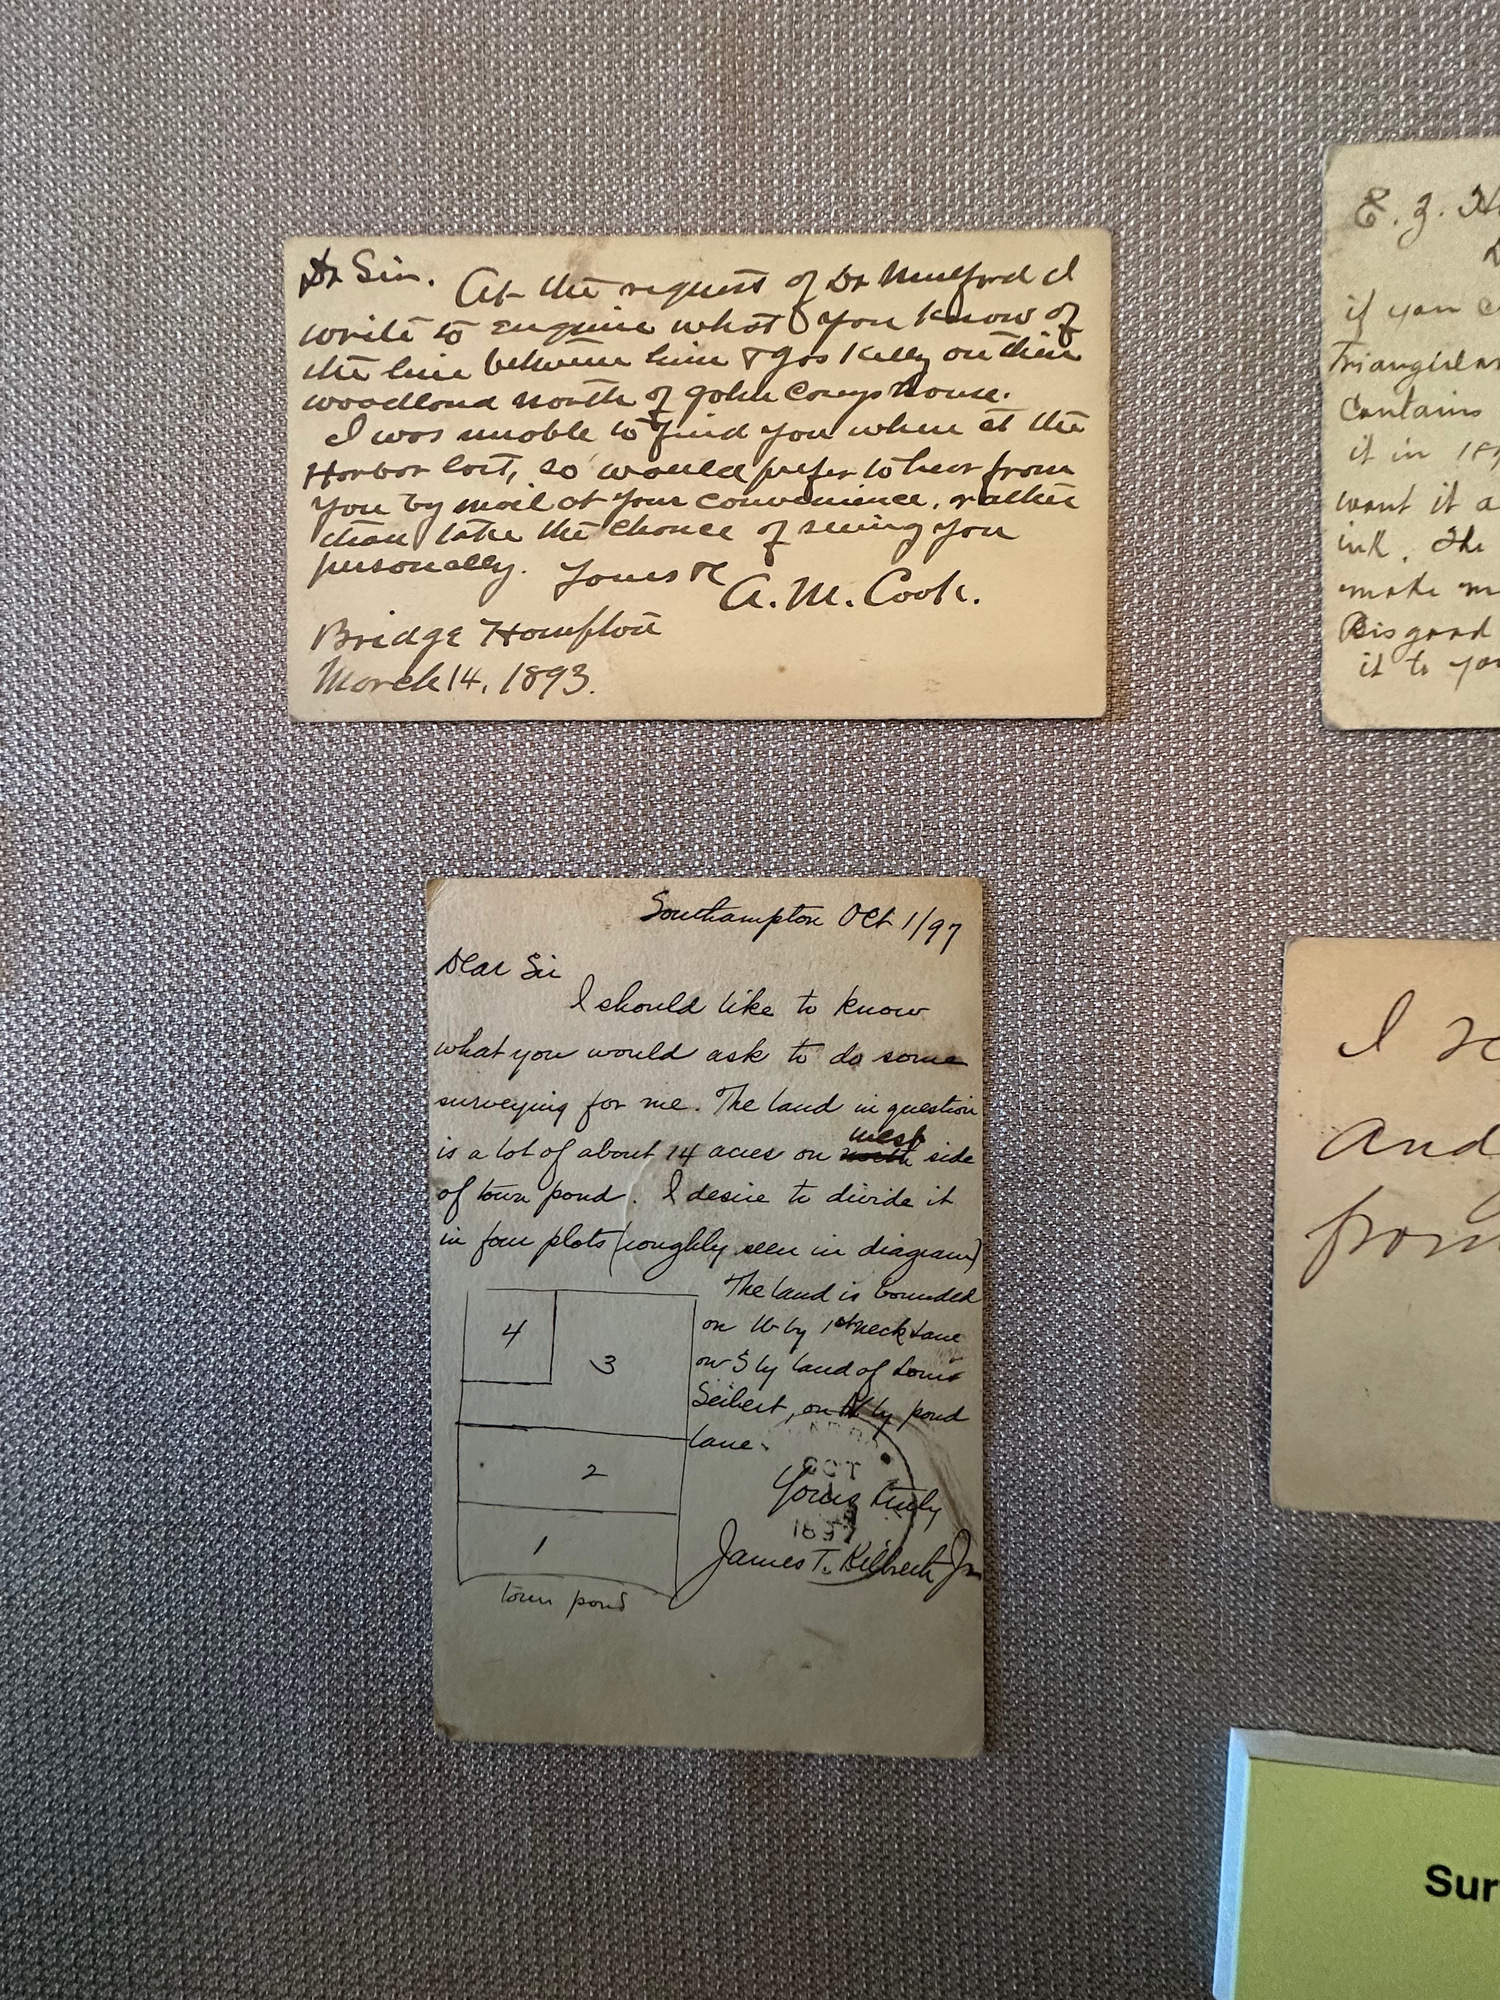 Dr Sir. At the request of Dr Mulford I
write to enquire what you know of
the line between him & Jos Kelly on their
woodland north of John Coreys house.
I was unable to find you when at the
Harbor last, so would prefer to hear from
you by mail at your convenience, rather
than take the chance of seeing you
personally. Yours &c A. M. Cook.
Bridge Hampton
March 14, 1893.
E. Z. H
if you c
Triangular
Contains
it in 189
want it a
ink. The
make m
Risgard
it to yo
Southampton Oct 1/97
Dear Sir
I should like to know
what you would ask to do some
surveying for me. The land in question
is a lot of about 14 acres on north west side
of town pond. I desire to divide it
in four plots (roughly seen in diagram)
The land is bounded
on W by 1st Neck Lane
on S by land of Louis
Seibert, on N by pond
lane.
Yours truly
James T. Kilbreth Jr
4
3
2
1
town pond
OCT
I
and
from
Sur